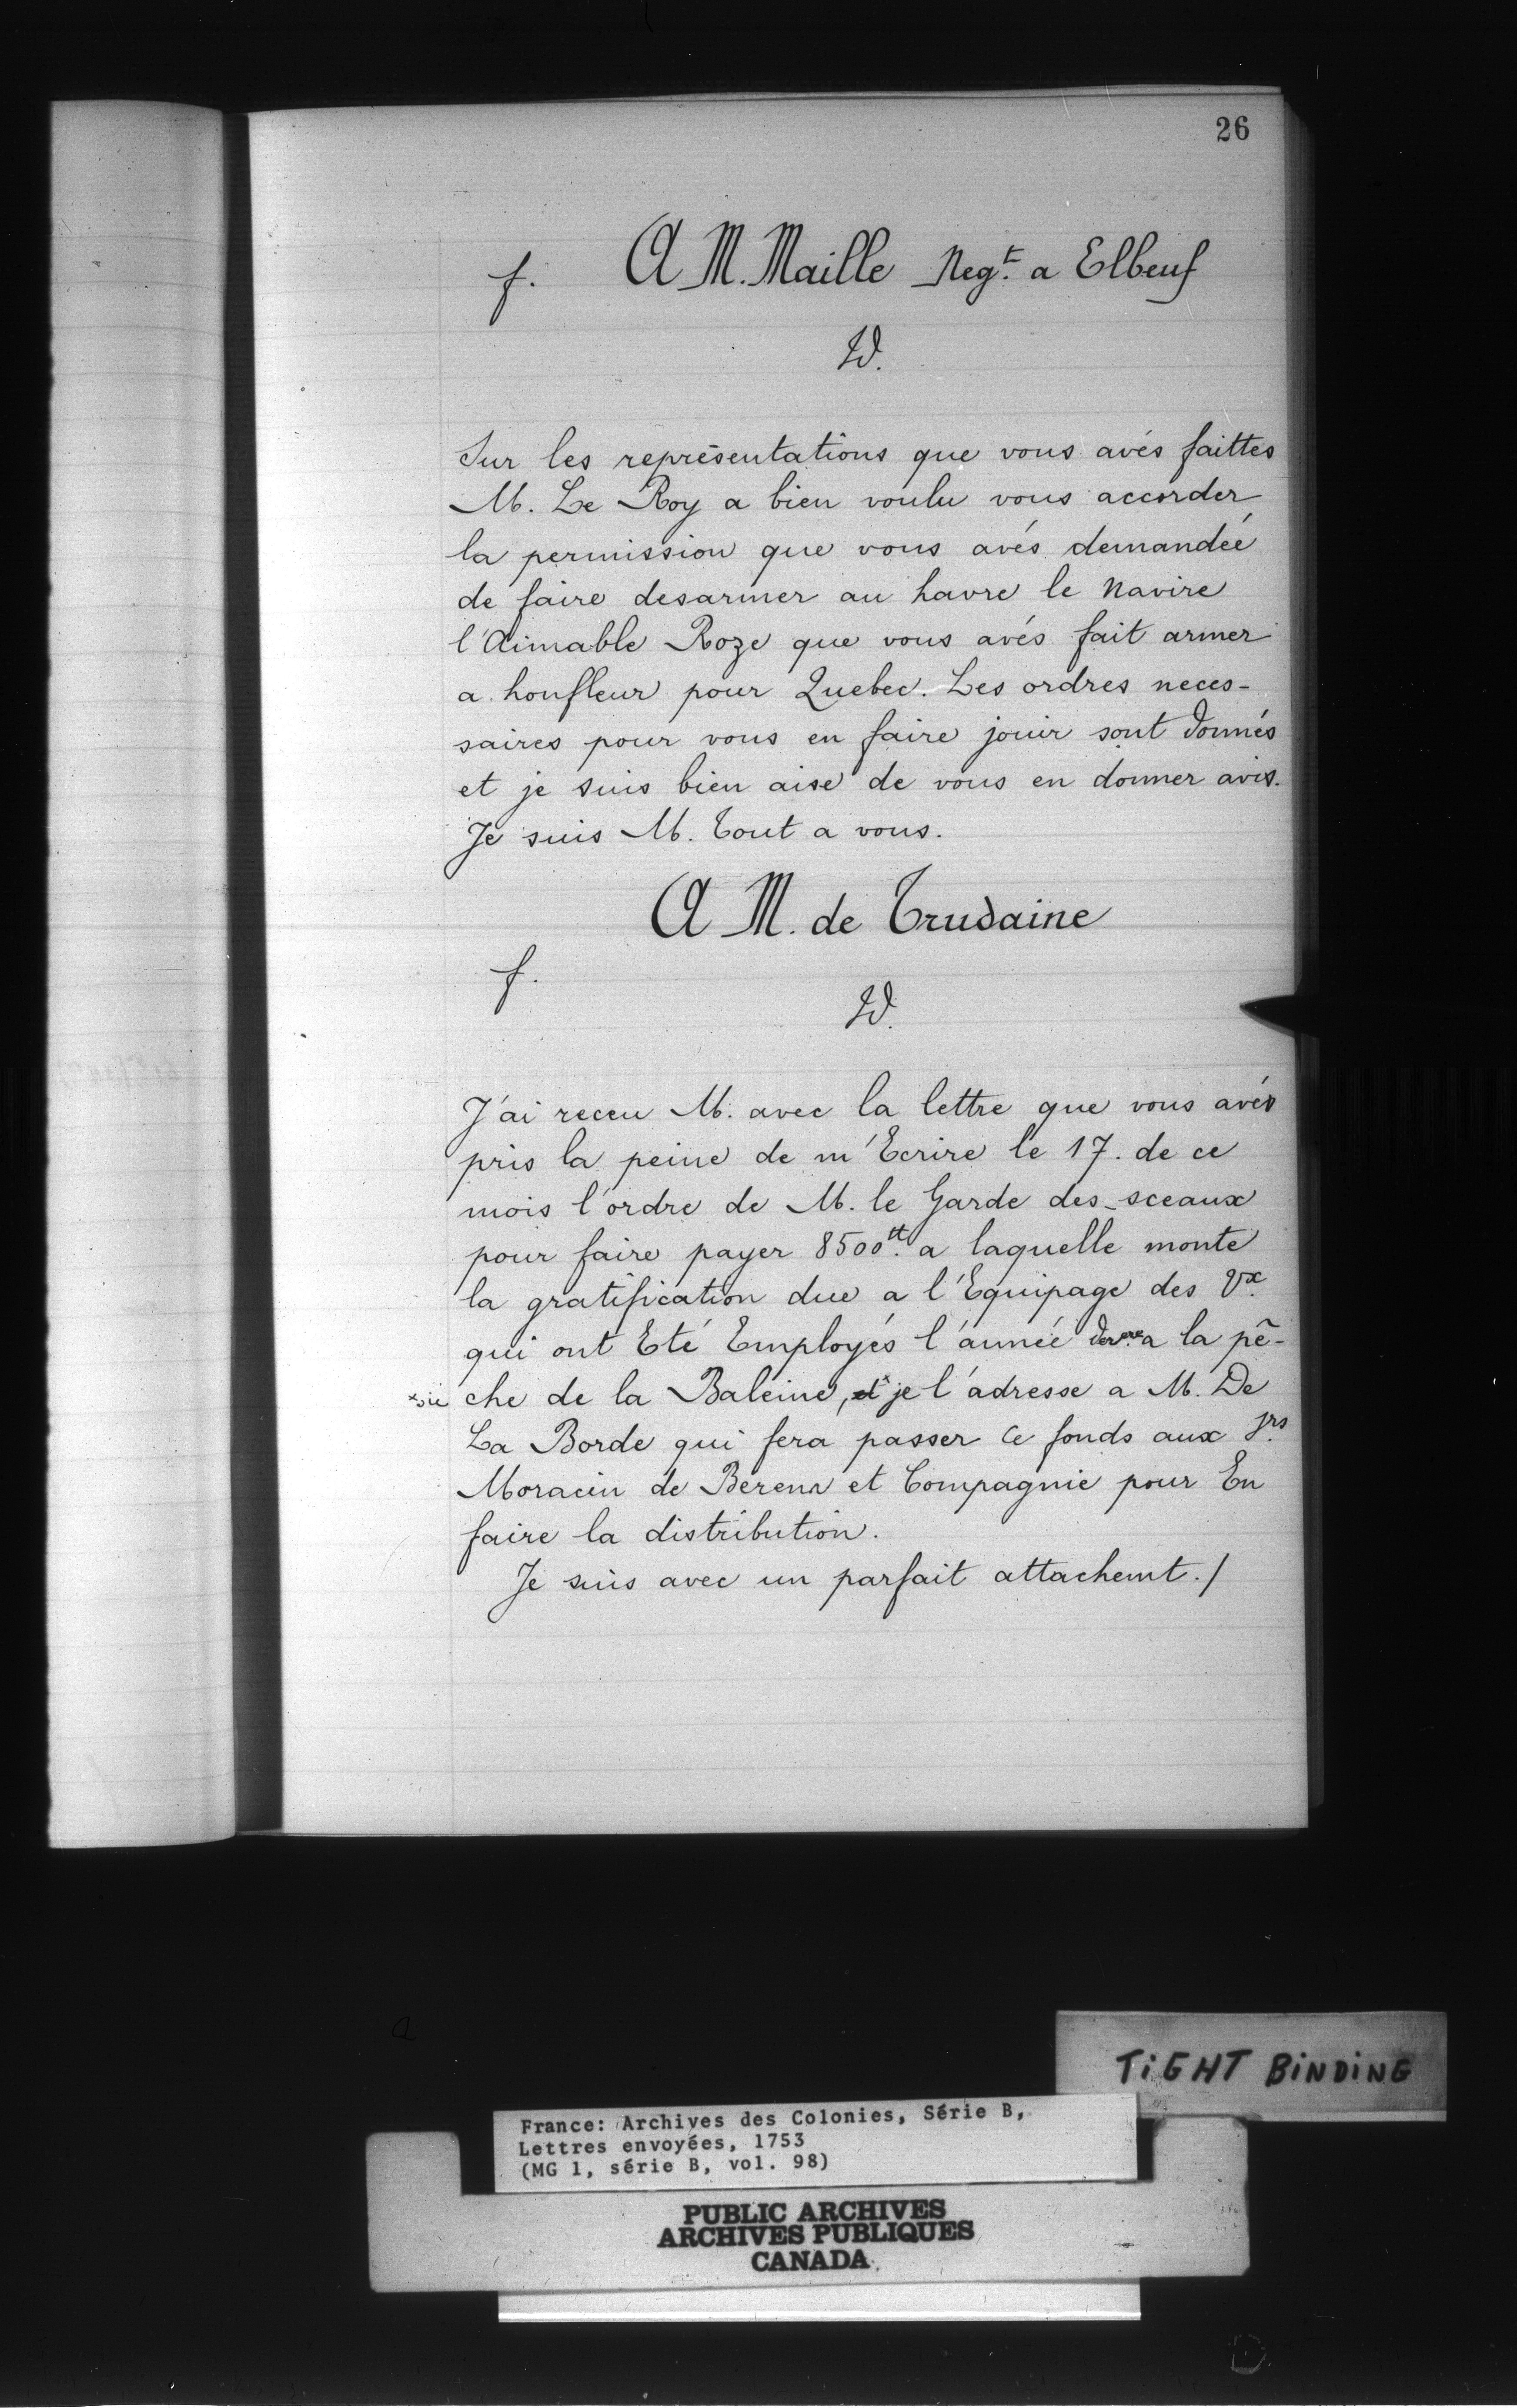 26
f. A M. Maille Negt. a Elbeuf
Id.
Sur les représentations que vous avés faittes
M. Le Roy a bien voulu vous accorder
la permission que vous avés demandée
de faire desarmer au havre le Navire
l'Aimable Roze que vous avés fait armer
a honfleur pour Quebec. Les ordres neces-
saires pour vous en faire jouir sont donnés
et je suis bien aise de vous en donner avis.
Je suis M. Tout a vous.
A M. de Trudaine
f.
Id.
J'ai receu M. avec la lettre que vous avés
pris la peine de m'Ecrire le 17. de ce
mois l'ordre de M. le Garde des sceaux
pour faire payer 8500tt. a laquelle monte
la gratification due a l'Equipage des Vx.
qui ont Eté Employés l'année derere a la pê-
che de la Baleine, et x je l'adresse a M. De
La Borde qui fera passer Ce fonds aux Srs.
Moracin de et Compagnie pour En
faire la distribution.
Je suis avec un parfait attachemt./
TiGHT BiNDiNG
France: Archives des Colonies, Série B,
Lettres envoyées, 1753
(MG 1, série B, vol. 98)
PUBLIC ARCHIVES
ARCHIVES PUBLIQUES
CANADA